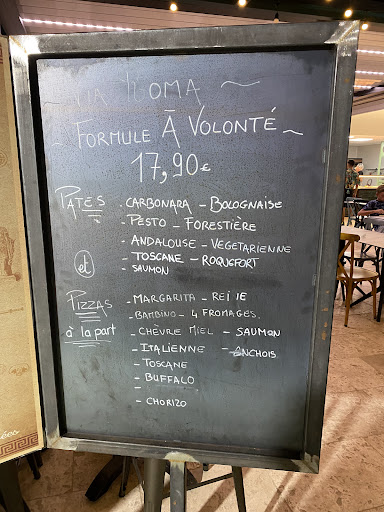 ~ VIA ROMA ~
~ FORMULE À VOLONTÉ ~
17,90€
PATES - CARBONARA - BOLOGNAISE
- PESTO - FORESTIÈRE
- ANDALOUSE - VEGETARIENNE
- TOSCANE - ROQUEFORT
et - SAUMON
PIZZAS - MARGARITA - REINE
- BAMBINO - 4 FROMAGES.
à la part - CHÈVRE MIEL - SAUMON
- ITALIENNE - ANCHOIS
- TOSCANE
- BUFFALO
- CHORIZO